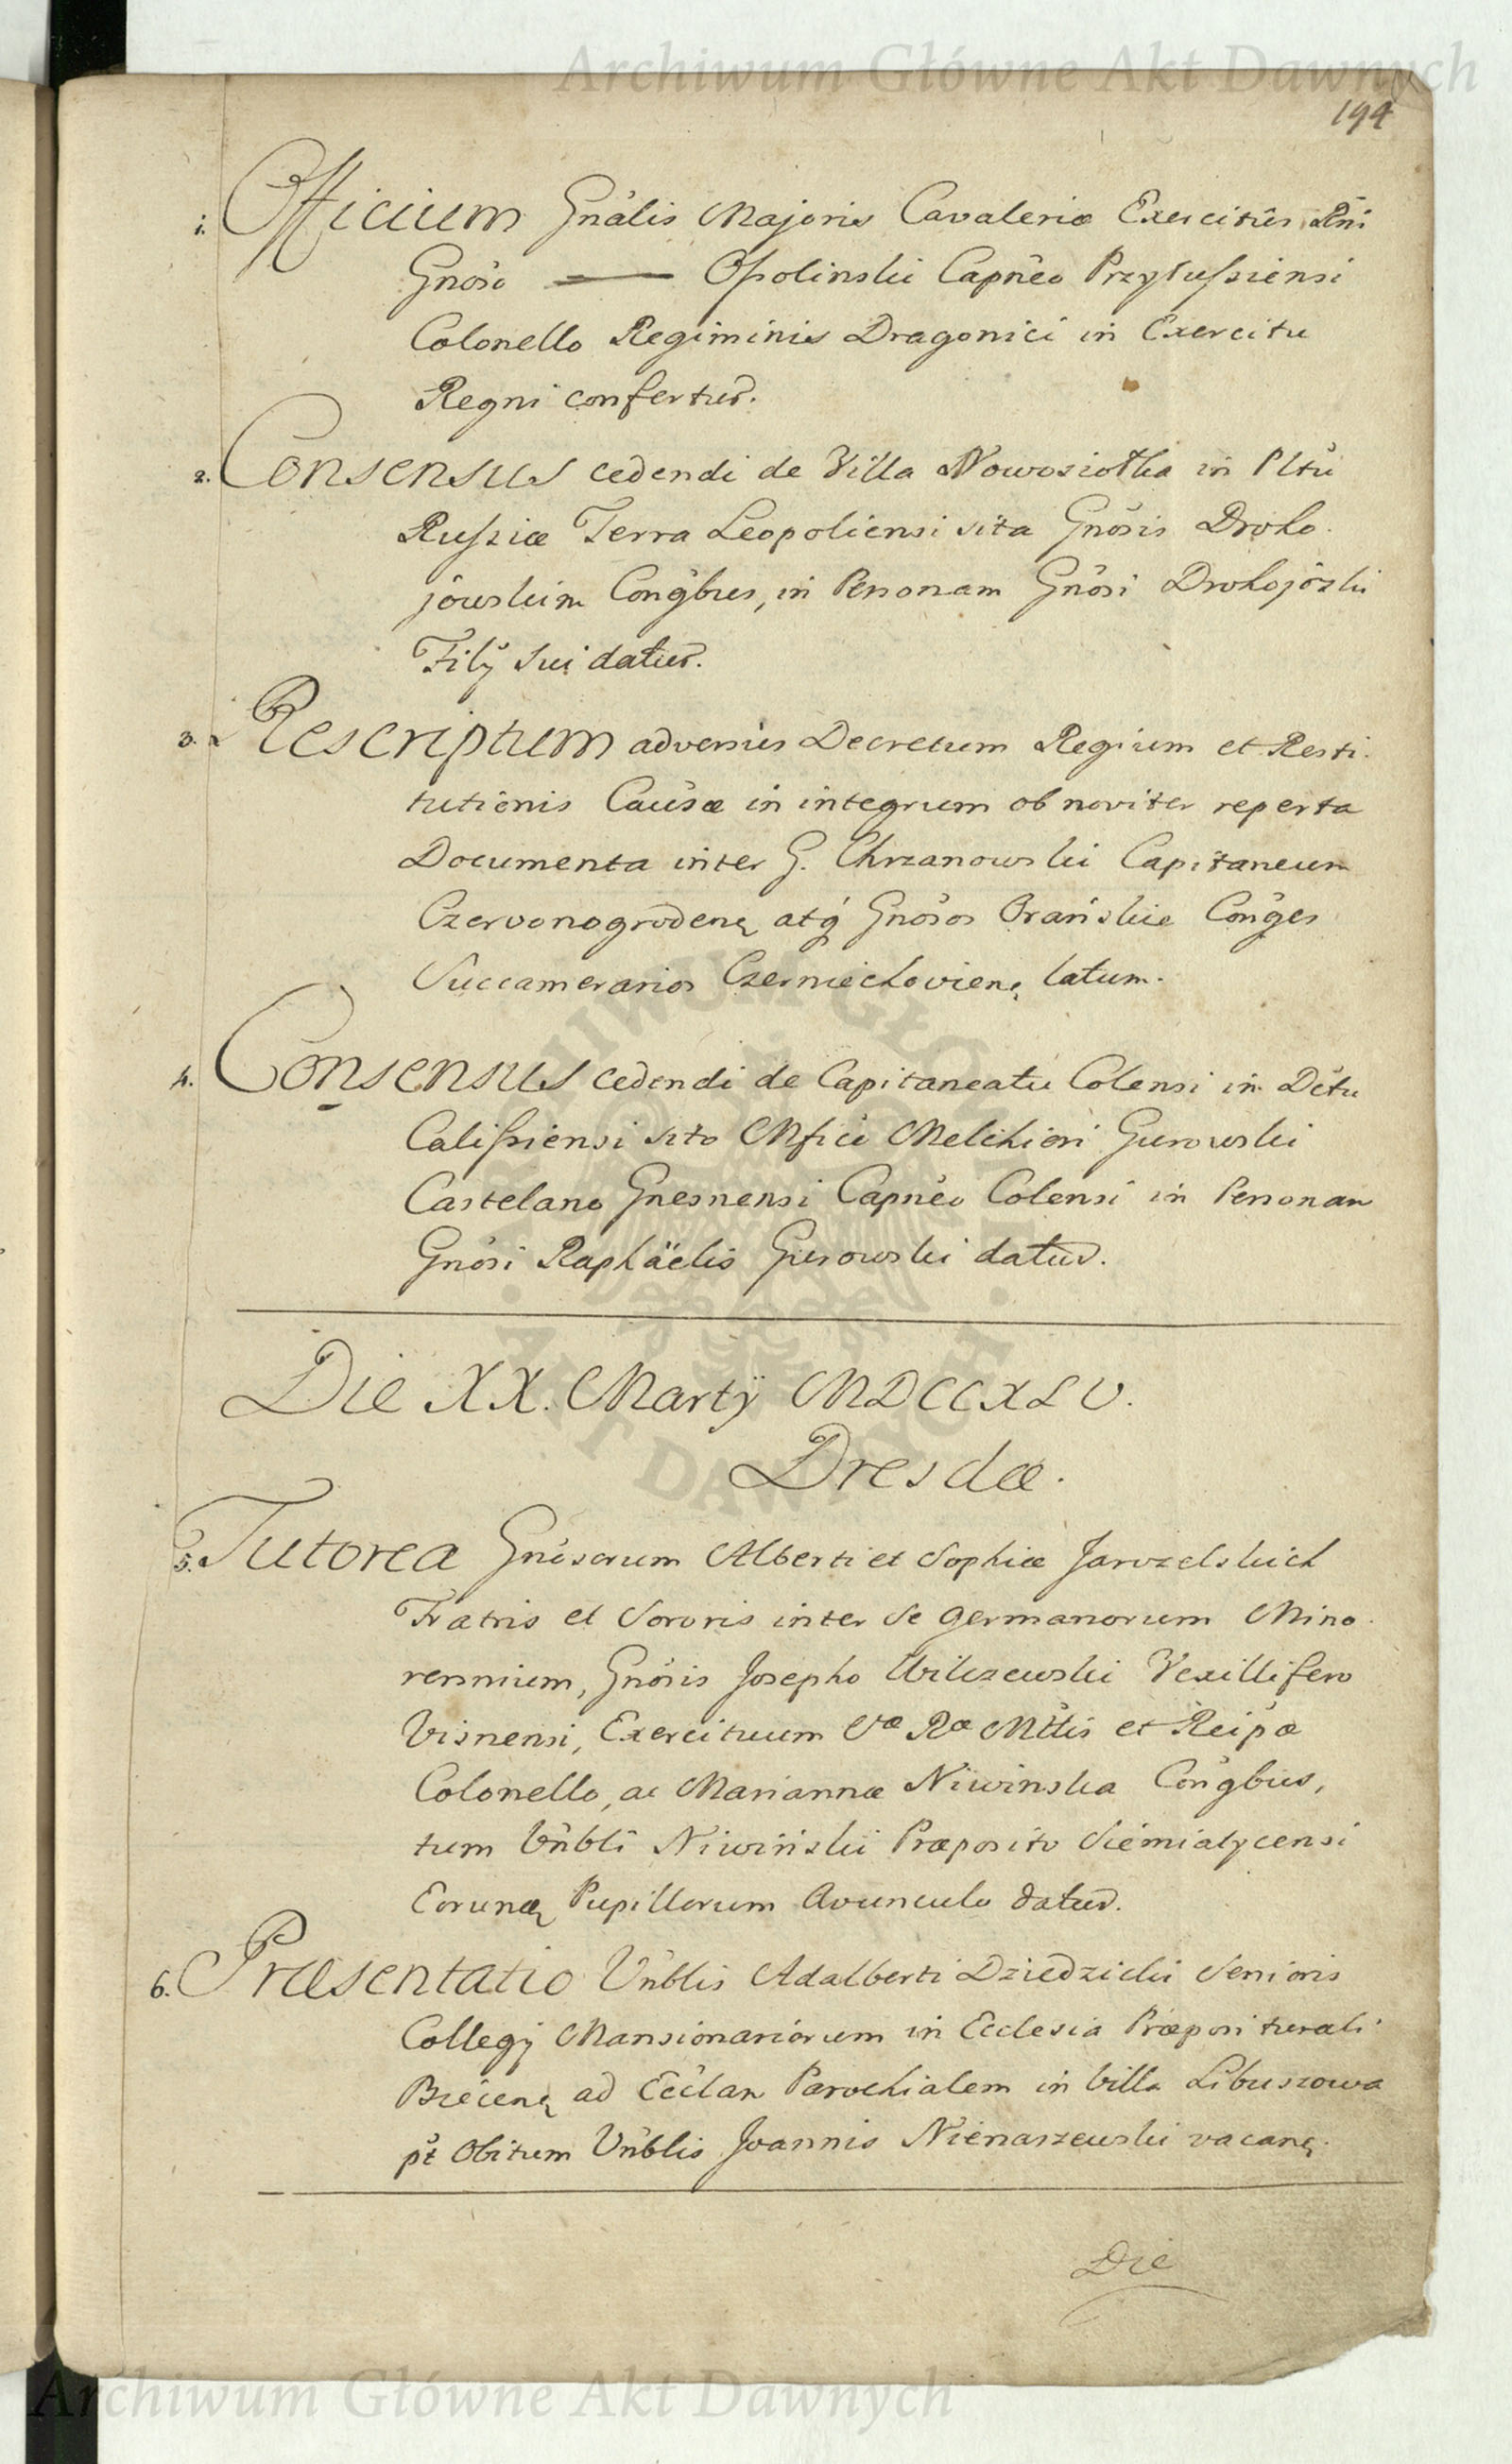 Archiwum Główne Akt Dawnych
194
1. Officium Gnâlis Majoris Cavaleriæ Exercitûs Rñi
Gnoso — Opolinski Capñeo Przyłusziensi
Colonello Regiminis Dragonici in Exercitu
Regni confertur.
2. Consensus cedendi de Villa Nowosiołka in Pltu
Rusziæ Terra Leopoliensi sita Gnosis Droho-
jowskim Congbus, in Personam Gnosi Drohojoski
Filij sui datur.
3. Rescriptum adversus Decretum Regium et Resti-
tutionis Causæ in integrum ob noviter reperta
Documenta inter G. Chrzanowski Capitaneum
Czervonogroden. atq Gnosos Orańskie Conges
Succamerarios Czerniechovien. latum.
4. Consensus cedendi de Capitaneatu Colensi in Dctu
Calissiensi sito Mfico Melchiori Gurowski
Castelano Gnesnensi Capneo Colensi in Personam
Gnosi Raphäelis Gurowski datur.
Die XX. Martij MDCCXLV.
Dresdæ.
5. Tutorea Gnosorum Alberti et Sophiæ Jaruzelskich
Fratris et Sororis inter se germanorum Mino-
rennium, Gnosis Josepho Wilczewski Vexillifero
Visnensi, Exercituum Sæ Ræ Mttis et Reipæ
Colonello, ac Mariannæ Niwinska Congbus,
tum Vnbli Niwiński Præposito Siemiatycensi
Eorundem Pupillorum Avunculo datur.
6. Præsentatio Vnblis Adalberti Dziedzicki Senioris
Collegij Mansionariorum in Ecclesia Præpositurali
Biecen. ad Ecclam Parochialem in Villa Libuszowa
pt Obitum Vnblis Joannis Nienaszewski vacan.
Die
ARCHIWUM GŁÓWNE AKT DAWNYCH
Archiwum Główne Akt Dawnych